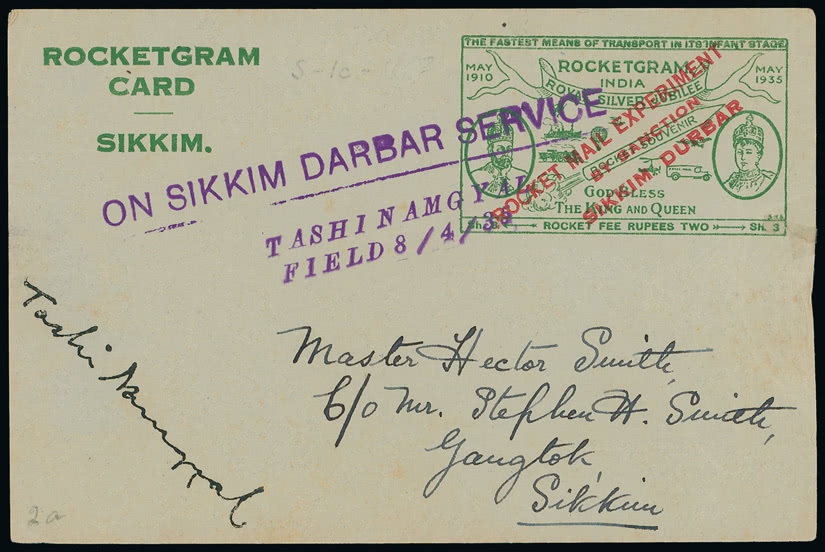 ROCKETGRAM
CARD
SIKKIM.
THE FASTEST MEANS OF TRANSPORT IN ITS INFANT STAGE
MAY
1910
ROCKETGRAM
INDIA
MAY
1935
ROYAL SILVER JUBILEE
ROCKET SOUVENIR
GOD BLESS
THE KING AND QUEEN
ROCKET FEE RUPEES TWO
SH. 3
ROCKET MAIL EXPERIMENT
BY SANCTION
SIKKIM DURBAR
ON SIKKIM DARBAR SERVICE
TASHINAMGYAL
FIELD 8/4/35
Tashi Namgyal
Master Hector Smith,
C/o Mr. Stephen H. Smith,
Gangtok,
Sikkim
2a